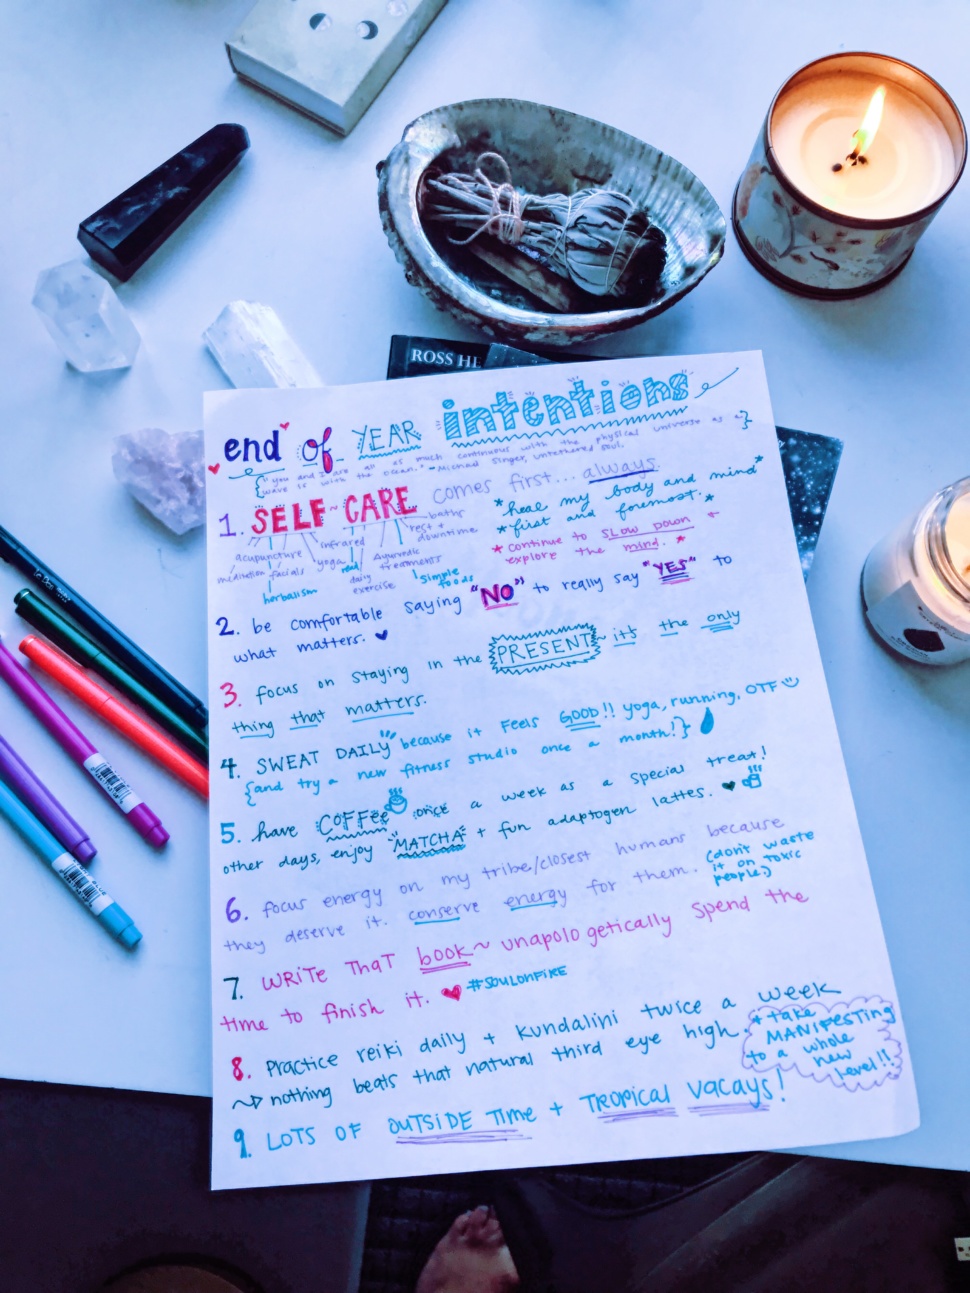 ROSS HE
end of YEAR intentions
{"you and I are all as much continuous with the physical universe as a
wave is with the ocean." - Michael Singer, untethered soul. }
1. SELF-CARE comes first... always.
*heal my body and mind*
*first and foremost.*
* continue to SLOW DOWN +
explore the mind. *
acupuncture
meditation
facials
herbalism
infrared
yoga
read
daily
exercise
Ayurvedic
treatments
simple
foods
baths
rest +
downtime
2. be comfortable saying "NO" to really say "YES" to
what matters.
3. focus on staying in the PRESENT~ it's the only
thing that matters.
4. SWEAT DAILY because it feels GOOD!! yoga, running, OTF
{and try a new fitness studio once a month!}
5. have COFFee once a week as a special treat!
other days, enjoy "MATCHA" + fun adaptogen lattes.
6. focus energy on my tribe/closest humans because
they deserve it. conserve energy for them.
(don't waste
it on toxic
people.)
7. WRiTe THaT book~ unapologetically spend the
time to finish it. #SOULONFIRE
8. Practice reiki daily + kundalini twice a week
nothing beats that natural third eye high.
+ take
MANIFESTING
to a whole
new
level!!
9. LOTS OF OUTSIDE Time + TROPICAL VACAYS!